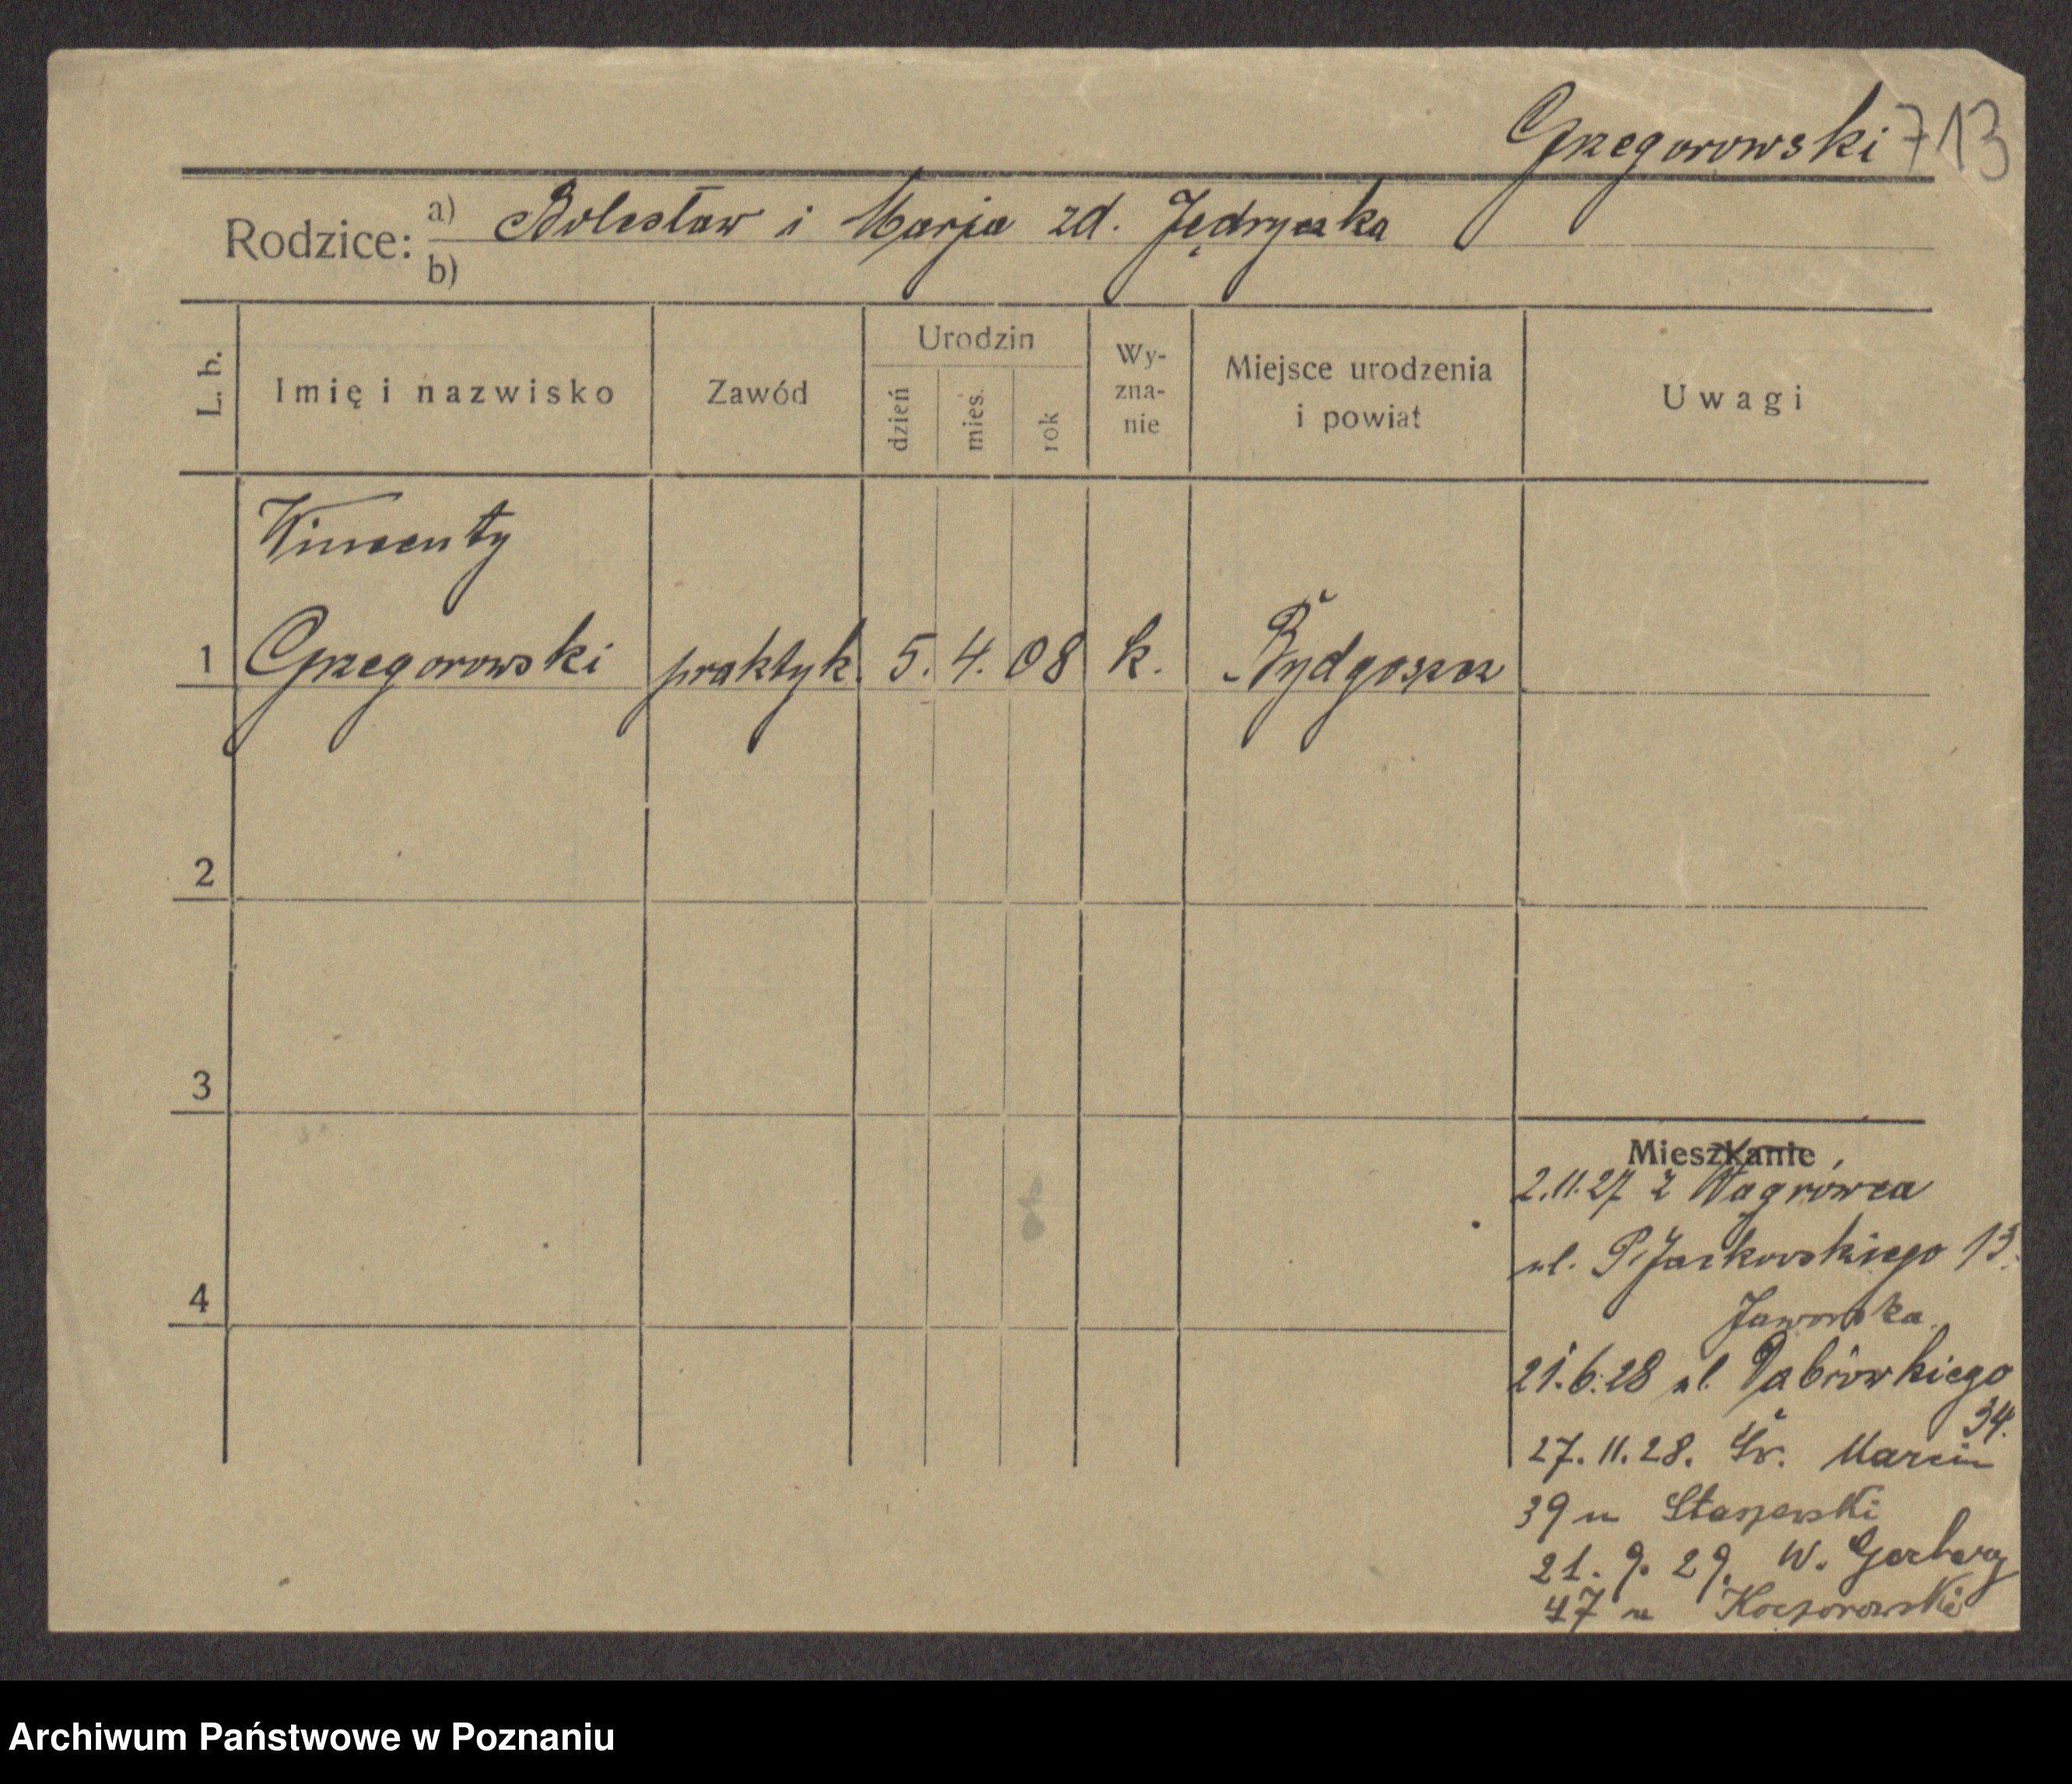 Grzegorowski 713
Rodzice: a) Bolesław i Marja zd. Jędryczka
b)
L. b.
Imię i nazwisko
Zawód
Urodzin
dzień
mies.
rok
Wy-
zna-
nie
Miejsce urodzenia
i powiat
Uwagi
Wincenty
1 Grzegorowski praktyk. 5. 4. 08 k. Bydgoszcz
2
3
4
Mieszkanie
2.11.27 z Wągrówca
ul. P. Jackowskiego 13.
Jaworska
21.6.28 ul. Dąbrówkiego
34.
27.11.28. Św. Marcin
39 u Staszewski
21. 9. 29. W. Garbary
47 u Koczorowski
Archiwum Państwowe w Poznaniu